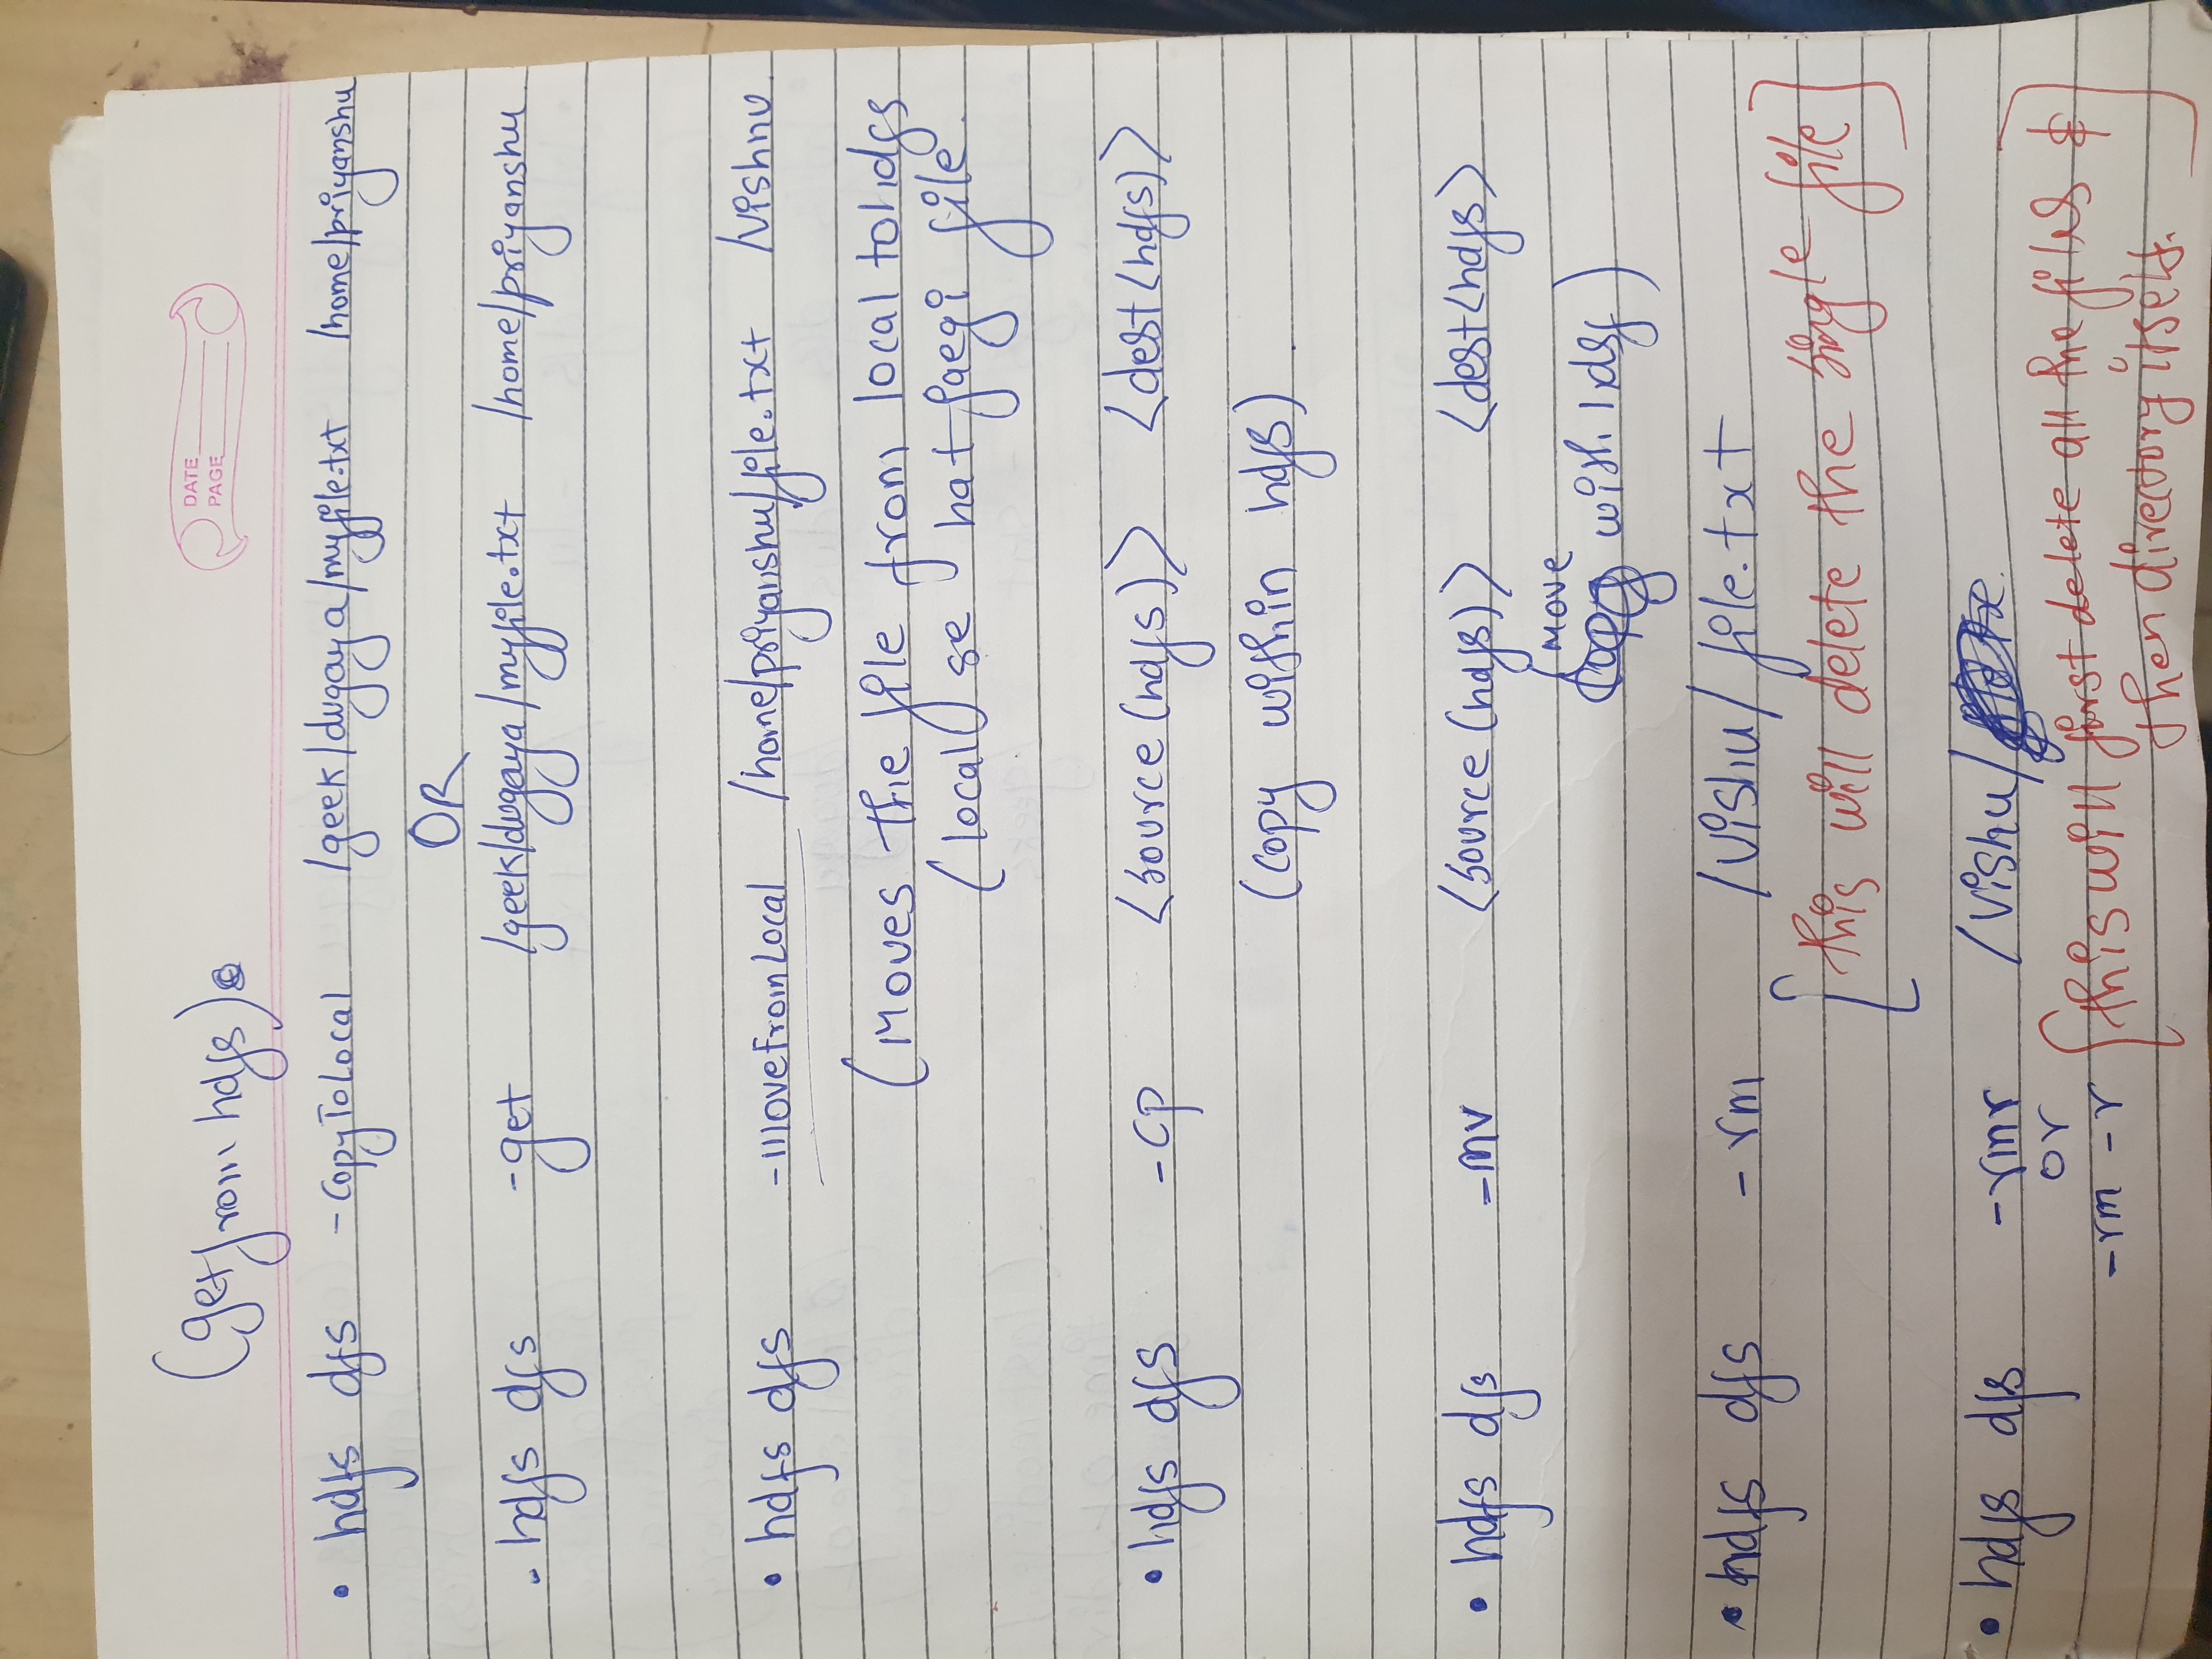 (get from hdfs)
DATE
PAGE
• hdfs dfs -CopyToLocal /geek/dugaya/myfile.txt /home/priyanshu
OR
- hdfs dfs -get /geek/dugaya/myfile.txt /home/priyanshu
• hdfs dfs -moveFromLocal /home/priyanshu/file.txt /Vishnu
(Moves the file from local to hdfs
(local se hat jaegi file.
• hdfs dfs -cp <source(hdfs)> <dest<hdfs)>
(copy within hdfs)
• hdfs dfs -mv <source(hdfs)> <dest<hdfs>
(move
with hdsf)
• hdfs dfs -rm /Vishu/file.txt
[this will delete the single file]
• hdfs dfs -rmr /Vishu/
or
-rm -r [this will first delete all the files &
then directory itself.]